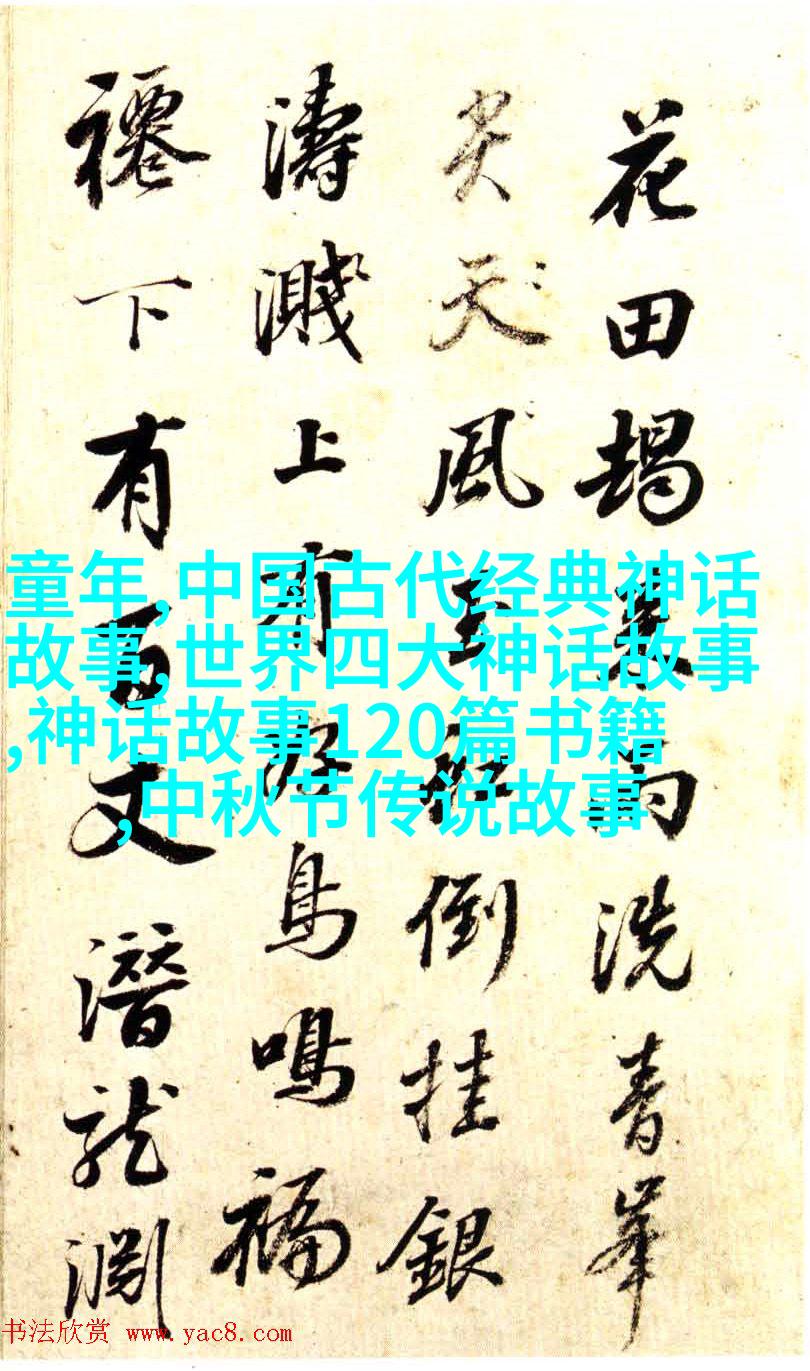 花田洗青峯
尖天風倒挂銀
濤濺上有鳥鳴
下有百丈潛龍淵
童年,中国古代经典神话
故事,世界四大神话故事
,神话故事120篇书籍
,中秋节传说故事
书法欣赏 www.yac8.com